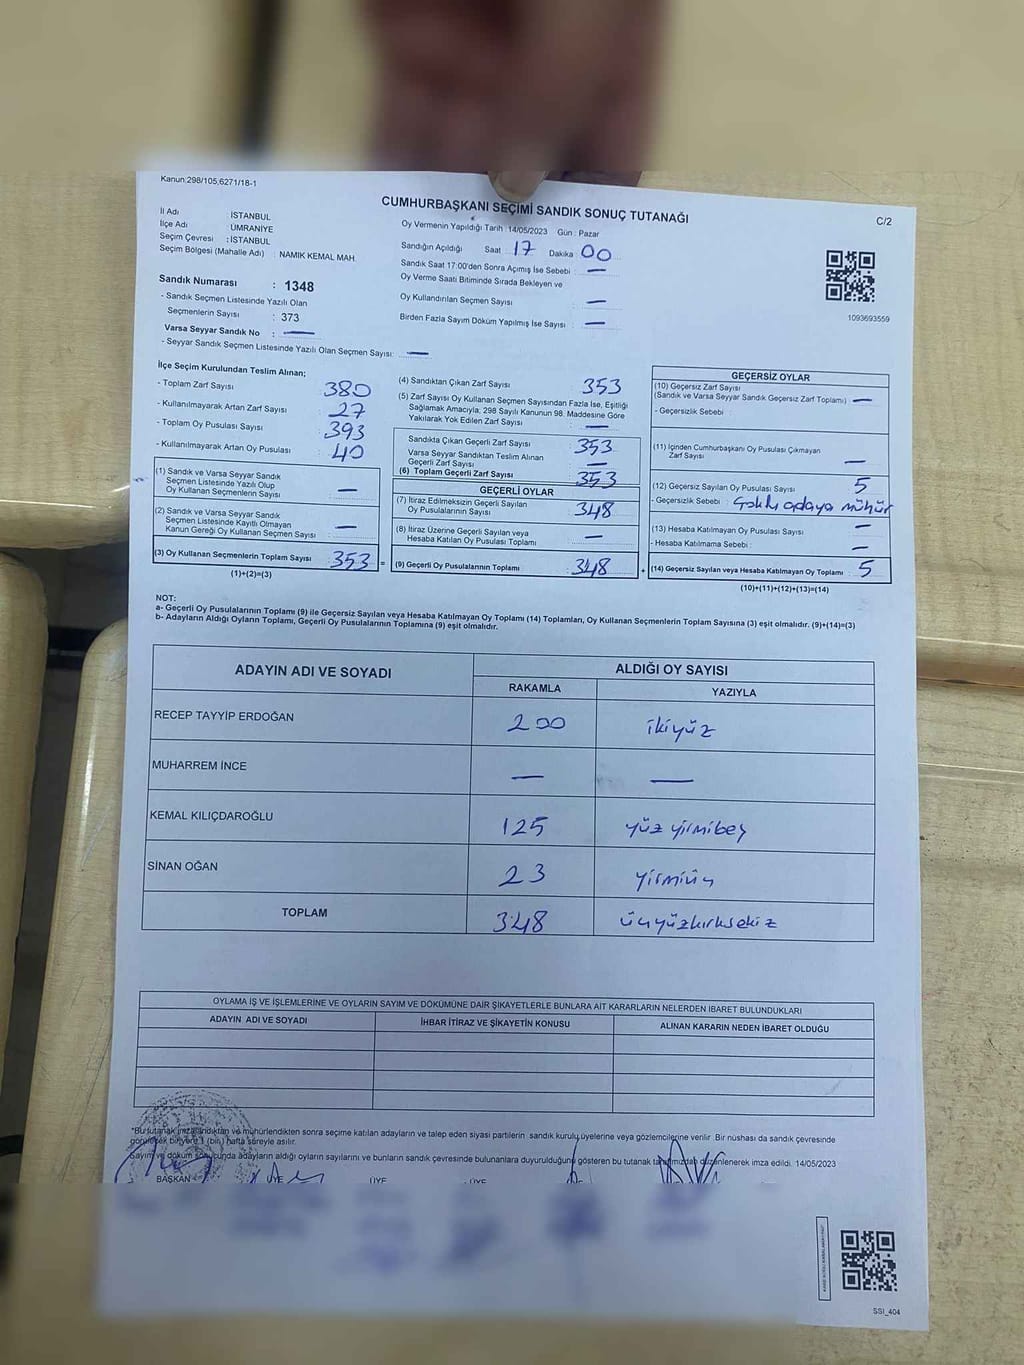 Kanun:298/105,6271/18-1
CUMHURBAŞKANI SEÇİMİ SANDIK SONUÇ TUTANAĞI
C/2
İl Adı : İSTANBUL
İlçe Adı : ÜMRANİYE
Seçim Çevresi : İSTANBUL
Seçim Bölgesi (Mahalle Adı) : NAMIK KEMAL MAH.
Sandık Numarası : 1348
- Sandık Seçmen Listesinde Yazılı Olan
Seçmenlerin Sayısı : 373
Varsa Seyyar Sandık No : —
- Seyyar Sandık Seçmen Listesinde Yazılı Olan Seçmen Sayısı: —
Oy Vermenin Yapıldığı Tarih :14/05/2023 Gün : Pazar
Sandığın Açıldığı Saat 17 Dakika 00
Sandık Saat 17:00'den Sonra Açımış İse Sebebi : —
Oy Verme Saati Bitiminde Sırada Bekleyen ve
Oy Kullandırılan Seçmen Sayısı : —
Birden Fazla Sayım Döküm Yapılmış İse Sayısı : —
1093693559
İlçe Seçim Kurulundan Teslim Alınan;
- Toplam Zarf Sayısı : 380
- Kullanılmayarak Artan Zarf Sayısı : 27
- Toplam Oy Pusulası Sayısı : 393
- Kullanılmayarak Artan Oy Pusulası : 40
(1) Sandık ve Varsa Seyyar Sandık
Seçmen Listesinde Yazılı Olup
Oy Kullanan Seçmenlerin Sayısı : —
(2) Sandık ve Varsa Seyyar Sandık
Seçmen Listesinde Kayıtlı Olmayan
Kanun Gereği Oy Kullanan Seçmen Sayısı : —
(3) Oy Kullanan Seçmenlerin Toplam Sayısı : 353 =
(1)+(2)=(3)
(4) Sandıktan Çıkan Zarf Sayısı : 353
(5) Zarf Sayısı Oy Kullanan Seçmen Sayısından Fazla İse, Eşitliği
Sağlamak Amacıyla, 298 Sayılı Kanunun 98. Maddesine Göre
Yakılarak Yok Edilen Zarf Sayısı : —
Sandıkta Çıkan Geçerli Zarf Sayısı : 353
Varsa Seyyar Sandıktan Teslim Alınan
Geçerli Zarf Sayısı : —
(6) Toplam Geçerli Zarf Sayısı : 353
GEÇERLİ OYLAR
(7) İtiraz Edilmeksizin Geçerli Sayılan
Oy Pusulalarının Sayısı : 348
(8) İtiraz Üzerine Geçerli Sayılan veya
Hesaba Katılan Oy Pusulası Toplamı : —
(9) Geçerli Oy Pusulalarının Toplamı : 348 +
GEÇERSİZ OYLAR
(10) Geçersiz Zarf Sayısı
(Sandık ve Varsa Seyyar Sandık Geçersiz Zarf Toplamı) : —
- Geçersizlik Sebebi :
(11) İçinden Cumhurbaşkanı Oy Pusulası Çıkmayan
Zarf Sayısı : —
(12) Geçersiz Sayılan Oy Pusulası Sayısı : 5
- Geçersizlik Sebebi : Çoklu adaya mühür
(13) Hesaba Katılmayan Oy Pusulası Sayısı : —
- Hesaba Katılmama Sebebi : —
(14) Geçersiz Sayılan veya Hesaba Katılmayan Oy Toplamı : 5
(10)+(11)+(12)+(13)=(14)
NOT:
a- Geçerli Oy Pusulalarının Toplamı (9) ile Geçersiz Sayılan veya Hesaba Katılmayan Oy Toplamı (14) Toplamları, Oy Kullanan Seçmenlerin Toplam Sayısına (3) eşit olmalıdır. (9)+(14)=(3)
b- Adayların Aldığı Oyların Toplamı, Geçerli Oy Pusulalarının Toplamına (9) eşit olmalıdır.
ADAYIN ADI VE SOYADI ALDIĞI OY SAYISI
RAKAMLA YAZIYLA
RECEP TAYYİP ERDOĞAN 200 ikiyüz
MUHARREM İNCE — —
KEMAL KILIÇDAROĞLU 125 yüz yirmibeş
SİNAN OĞAN 23 yirmiüç
TOPLAM 348 üçyüzkırksekiz
OYLAMA İŞ VE İŞLEMLERİNE VE OYLARIN SAYIM VE DÖKÜMÜNE DAİR ŞİKAYETLERLE BUNLARA AİT KARARLARIN NELERDEN İBARET BULUNDUKLARI
ADAYIN ADI VE SOYADI İHBAR İTİRAZ VE ŞİKAYETİN KONUSU ALINAN KARARIN NEDEN İBARET OLDUĞU
*Bu tutanak imzalandıktan ve mühürlendikten sonra seçime katılan adayların ve talep eden siyasi partilerin sandık kurulu üyelerine veya gözlemcilerine verilir. Bir nüshası da sandık çevresinde
görülecek bir yere 1 (bir) hafta süreyle asılır.
Sayım ve döküm sonucunda adayların aldığı oyların sayılarını ve bunların sandık çevresinde bulunanlara duyurulduğunu gösteren bu tutanak tarafımızdan düzenlenerek imza edildi. 14/05/2023
BAŞKAN ÜYE ÜYE ÜYE
SSI_404